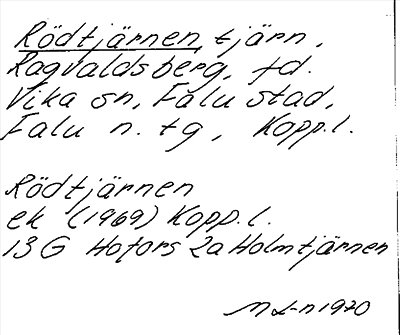 Rödtjärnen, tjärn,
Ragvaldsberg, fd.
Vika sn, Falu stad,
Falu n. tg, Kopp.l.
Rödtjärnen
ek (1969) Kopp.l.
13 G Hofors 2a Holmtjärnen
M L-n 1970